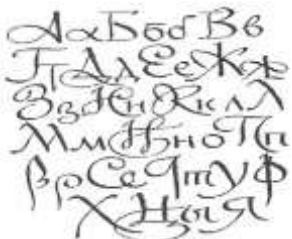 АаБбδВв
ГгДдЕеЖж
ЗзИиКклЛ
МмНнοПп
РрСсТтуФ
ХЦыЯ